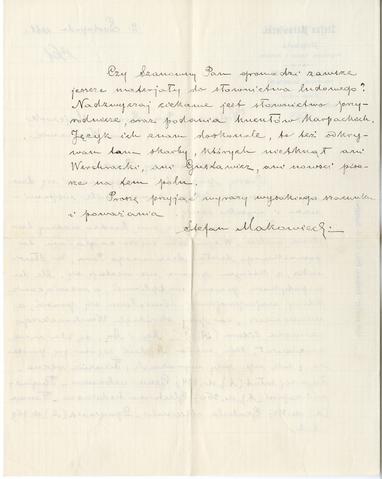 Czy Szanowny Pan gromadzi zawsze
jeszcze materjały do słownictwa ludowego?
Nadzwyczaj ciekawe jest słownictwo przy-
rodnicze oraz podania hucułów w Karpatach.
Język ich znam doskonale, to też odkry-
wam tam skarby, których nietknął ani
Werchracki, ani Gustawicz, ani nowsi pisa-
rze na tem polu.
Proszę przyjąć wyrazy wysokiego szacunku
i poważania
Stefan Makowiecki